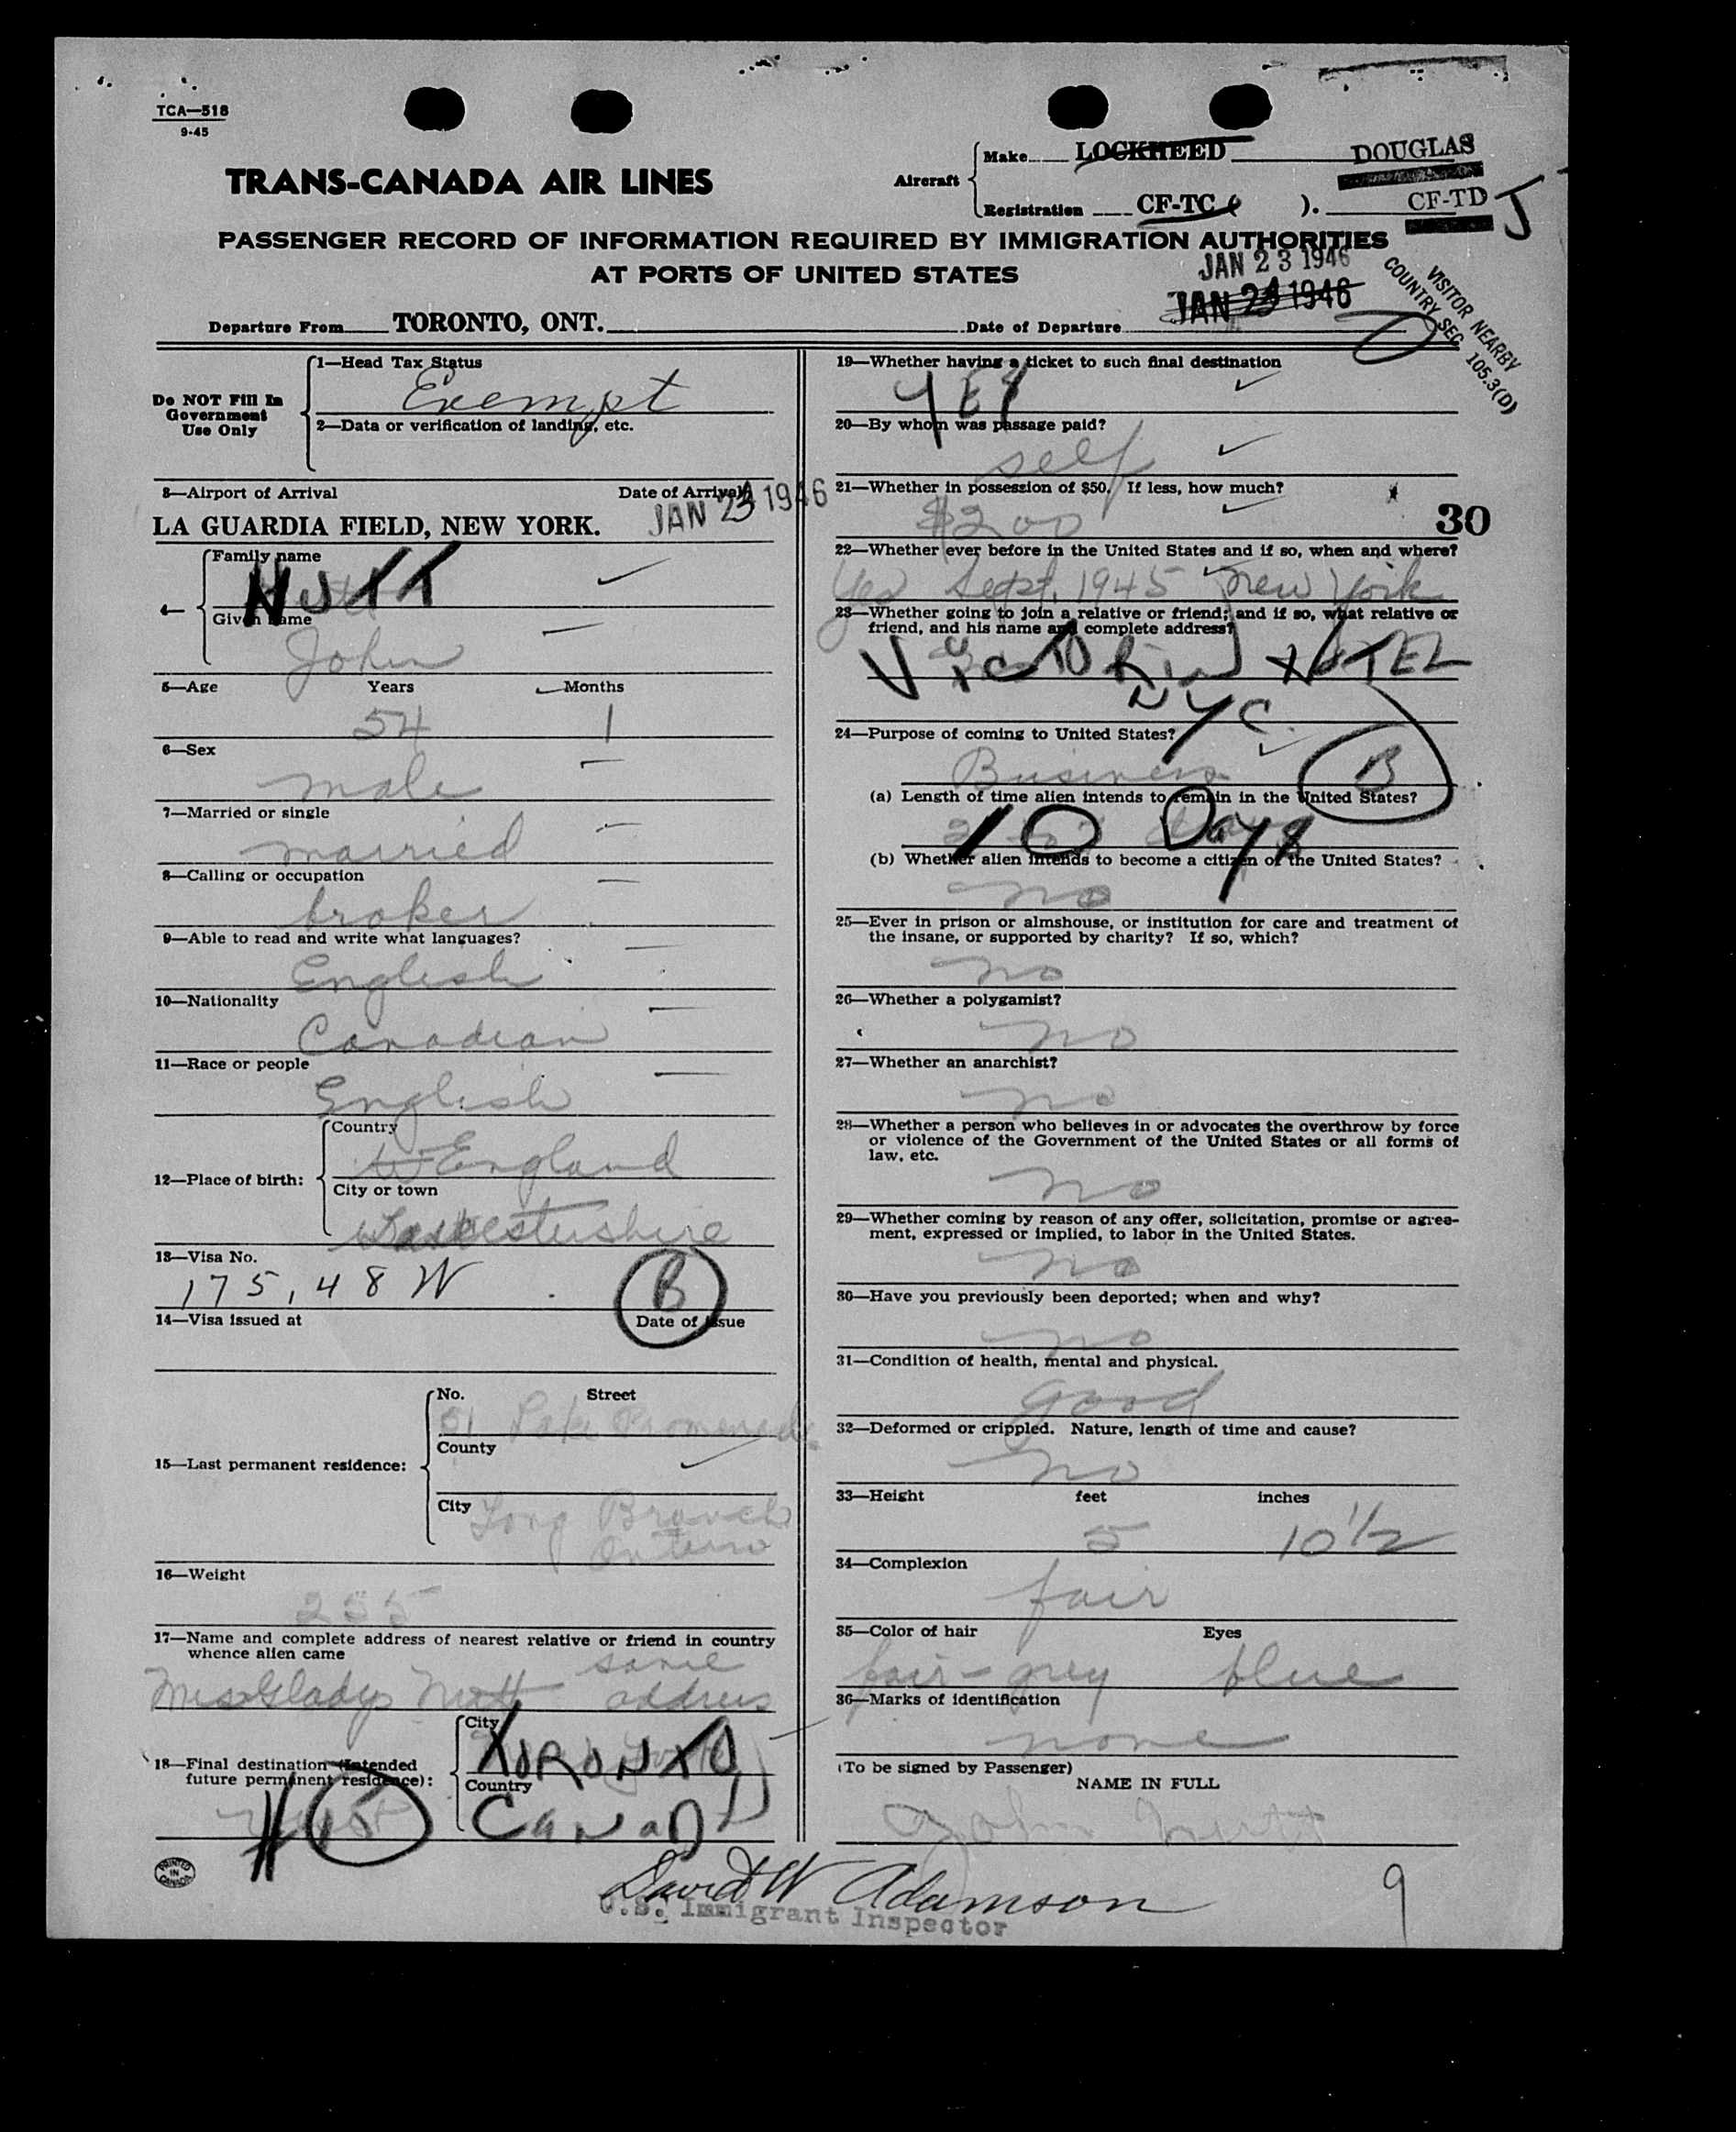 TCA—518
9-45
TRANS-CANADA AIR LINES
Aircraft
Make LOCKHEED DOUGLAS
Registration CF-TC ( ). CF-TD J
PASSENGER RECORD OF INFORMATION REQUIRED BY IMMIGRATION AUTHORITIES
AT PORTS OF UNITED STATES
JAN 23 1946
JAN 24 1946
VISITOR NEARBY
COUNTRY SEC 105.3(D)
Departure From TORONTO, ONT. Date of Departure
Do NOT Fill In
Government
Use Only
1—Head Tax Status
Exempt
2—Data or verification of landing, etc.
3—Airport of Arrival Date of Arrival
LA GUARDIA FIELD, NEW YORK. JAN 23 1946
4—
Family name
NUTT
Given name
John
5—Age Years Months
54 1
6—Sex
male
7—Married or single
married
8—Calling or occupation
broker
9—Able to read and write what languages?
English
10—Nationality
Canadian
11—Race or people
English
12—Place of birth:
Country
England
City or town
13—Visa No.
175,48 W B
14—Visa issued at Date of issue
15—Last permanent residence:
No. Street
51 Lake Promenade
County
City Long Branch
Ontario
16—Weight
17—Name and complete address of nearest relative or friend in country
whence alien came
same
Mrs Gladys Nutt address
18—Final destination (Intended
future permanent residence):
City
TORONTO
Country
CANADA
PRINTED
IN
CANADA
19—Whether having a ticket to such final destination
YES
20—By whom was passage paid?
self
21—Whether in possession of $50. If less, how much?
$200 30
22—Whether ever before in the United States and if so, when and where?
Yes Sept. 1945 New York
23—Whether going to join a relative or friend; and if so, what relative or
friend, and his name and complete address?
VICTORIA HOTEL
NYC
24—Purpose of coming to United States?
Business B
(a) Length of time alien intends to remain in the United States?
10 Days
(b) Whether alien intends to become a citizen of the United States?
no
25—Ever in prison or almshouse, or institution for care and treatment of
the insane, or supported by charity? If so, which?
no
26—Whether a polygamist?
no
27—Whether an anarchist?
no
28—Whether a person who believes in or advocates the overthrow by force
or violence of the Government of the United States or all forms of
law, etc.
no
29—Whether coming by reason of any offer, solicitation, promise or agree-
ment, expressed or implied, to labor in the United States.
no
30—Have you previously been deported; when and why?
no
31—Condition of health, mental and physical.
good
32—Deformed or crippled. Nature, length of time and cause?
no
33—Height feet inches
5 10 1/2
34—Complexion
fair
35—Color of hair Eyes
fair-grey blue
36—Marks of identification
none
(To be signed by Passenger)
NAME IN FULL
John Nutt
David W Adamson
U.S. Immigrant Inspector
9